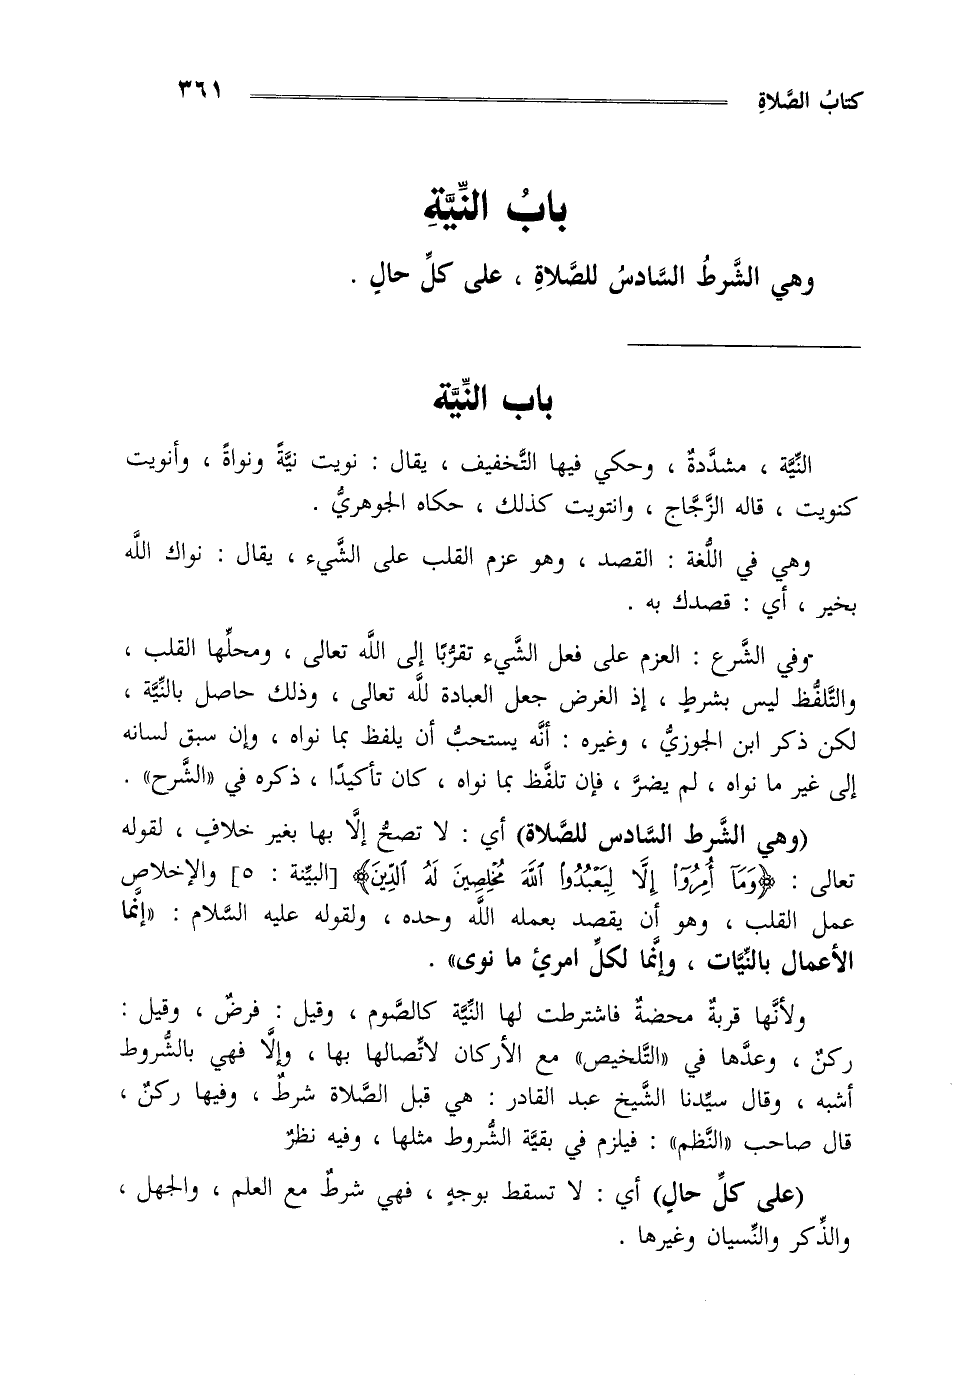 كتابُ الصَّلاةِ ٣٦١
بابُ النِّيَّةِ
وهي الشَّرطُ السَّادسُ للصَّلاةِ ، على كلِّ حالٍ .
باب النِّيَّة
النِّيَّة ، مشدَّدةٌ ، وحكي فيها التَّخفيف ، يقال : نويت نيَّةً ونواةً ، وأنويت
كنويت ، قاله الزَّجَّاج ، وانتويت كذلك ، حكاه الجوهريُّ .
وهي في اللُّغة : القصد ، وهو عزم القلب على الشَّيء ، يقال : نواك اللَّه
بخير ، أي : قصدك به .
وفي الشَّرع : العزم على فعل الشَّيء تقرُّبًا إلى اللَّه تعالى ، ومحلِّها القلب ،
والتَّلفُّظ ليس بشرطٍ ، إذ الغرض جعل العبادة للَّه تعالى ، وذلك حاصل بالنِّيَّة ،
لكن ذكر ابن الجوزيُّ ، وغيره : أنَّه يستحبُّ أن يلفظ بما نواه ، وإن سبق لسانه
إلى غير ما نواه ، لم يضرَّ ، فإن تلفَّظ بما نواه ، كان تأكيدًا ، ذكره في «الشَّرح» .
(وهي الشَّرط السَّادس للصَّلاة) أي : لا تصحُّ إلَّا بها بغير خلافٍ ، لقوله
تعالى : ﴿وَمَآ أُمِرُوٓاْ إِلَّا لِيَعۡبُدُواْ ٱللَّهَ مُخۡلِصِينَ لَهُ ٱلدِّينَ﴾ [البيِّنة : ٥] والإخلاص
عمل القلب ، وهو أن يقصد بعمله اللَّه وحده ، ولقوله عليه السَّلام : «إنَّما
الأعمال بالنِّيَّات ، وإنَّما لكلِّ امرئ ما نوى» .
ولأنَّها قربةٌ محضةٌ فاشترطت لها النِّيَّة كالصَّوم ، وقيل : فرضٌ ، وقيل :
ركنٌ ، وعدَّها في «التَّلخيص» مع الأركان لاتِّصالها بها ، وإلَّا فهي بالشُّروط
أشبه ، وقال سيِّدنا الشَّيخ عبد القادر : هي قبل الصَّلاة شرطٌ ، وفيها ركنٌ ،
قال صاحب «النَّظم» : فيلزم في بقيَّة الشُّروط مثلها ، وفيه نظرٌ
(على كلِّ حالٍ) أي : لا تسقط بوجهٍ ، فهي شرطٌ مع العلم ، والجهل ،
والذِّكر والنِّسيان وغيرها .